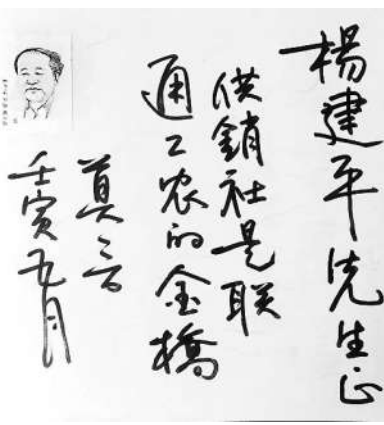 楊建平先生正
供銷社是联
通工农的金橋
莫言
壬寅五月